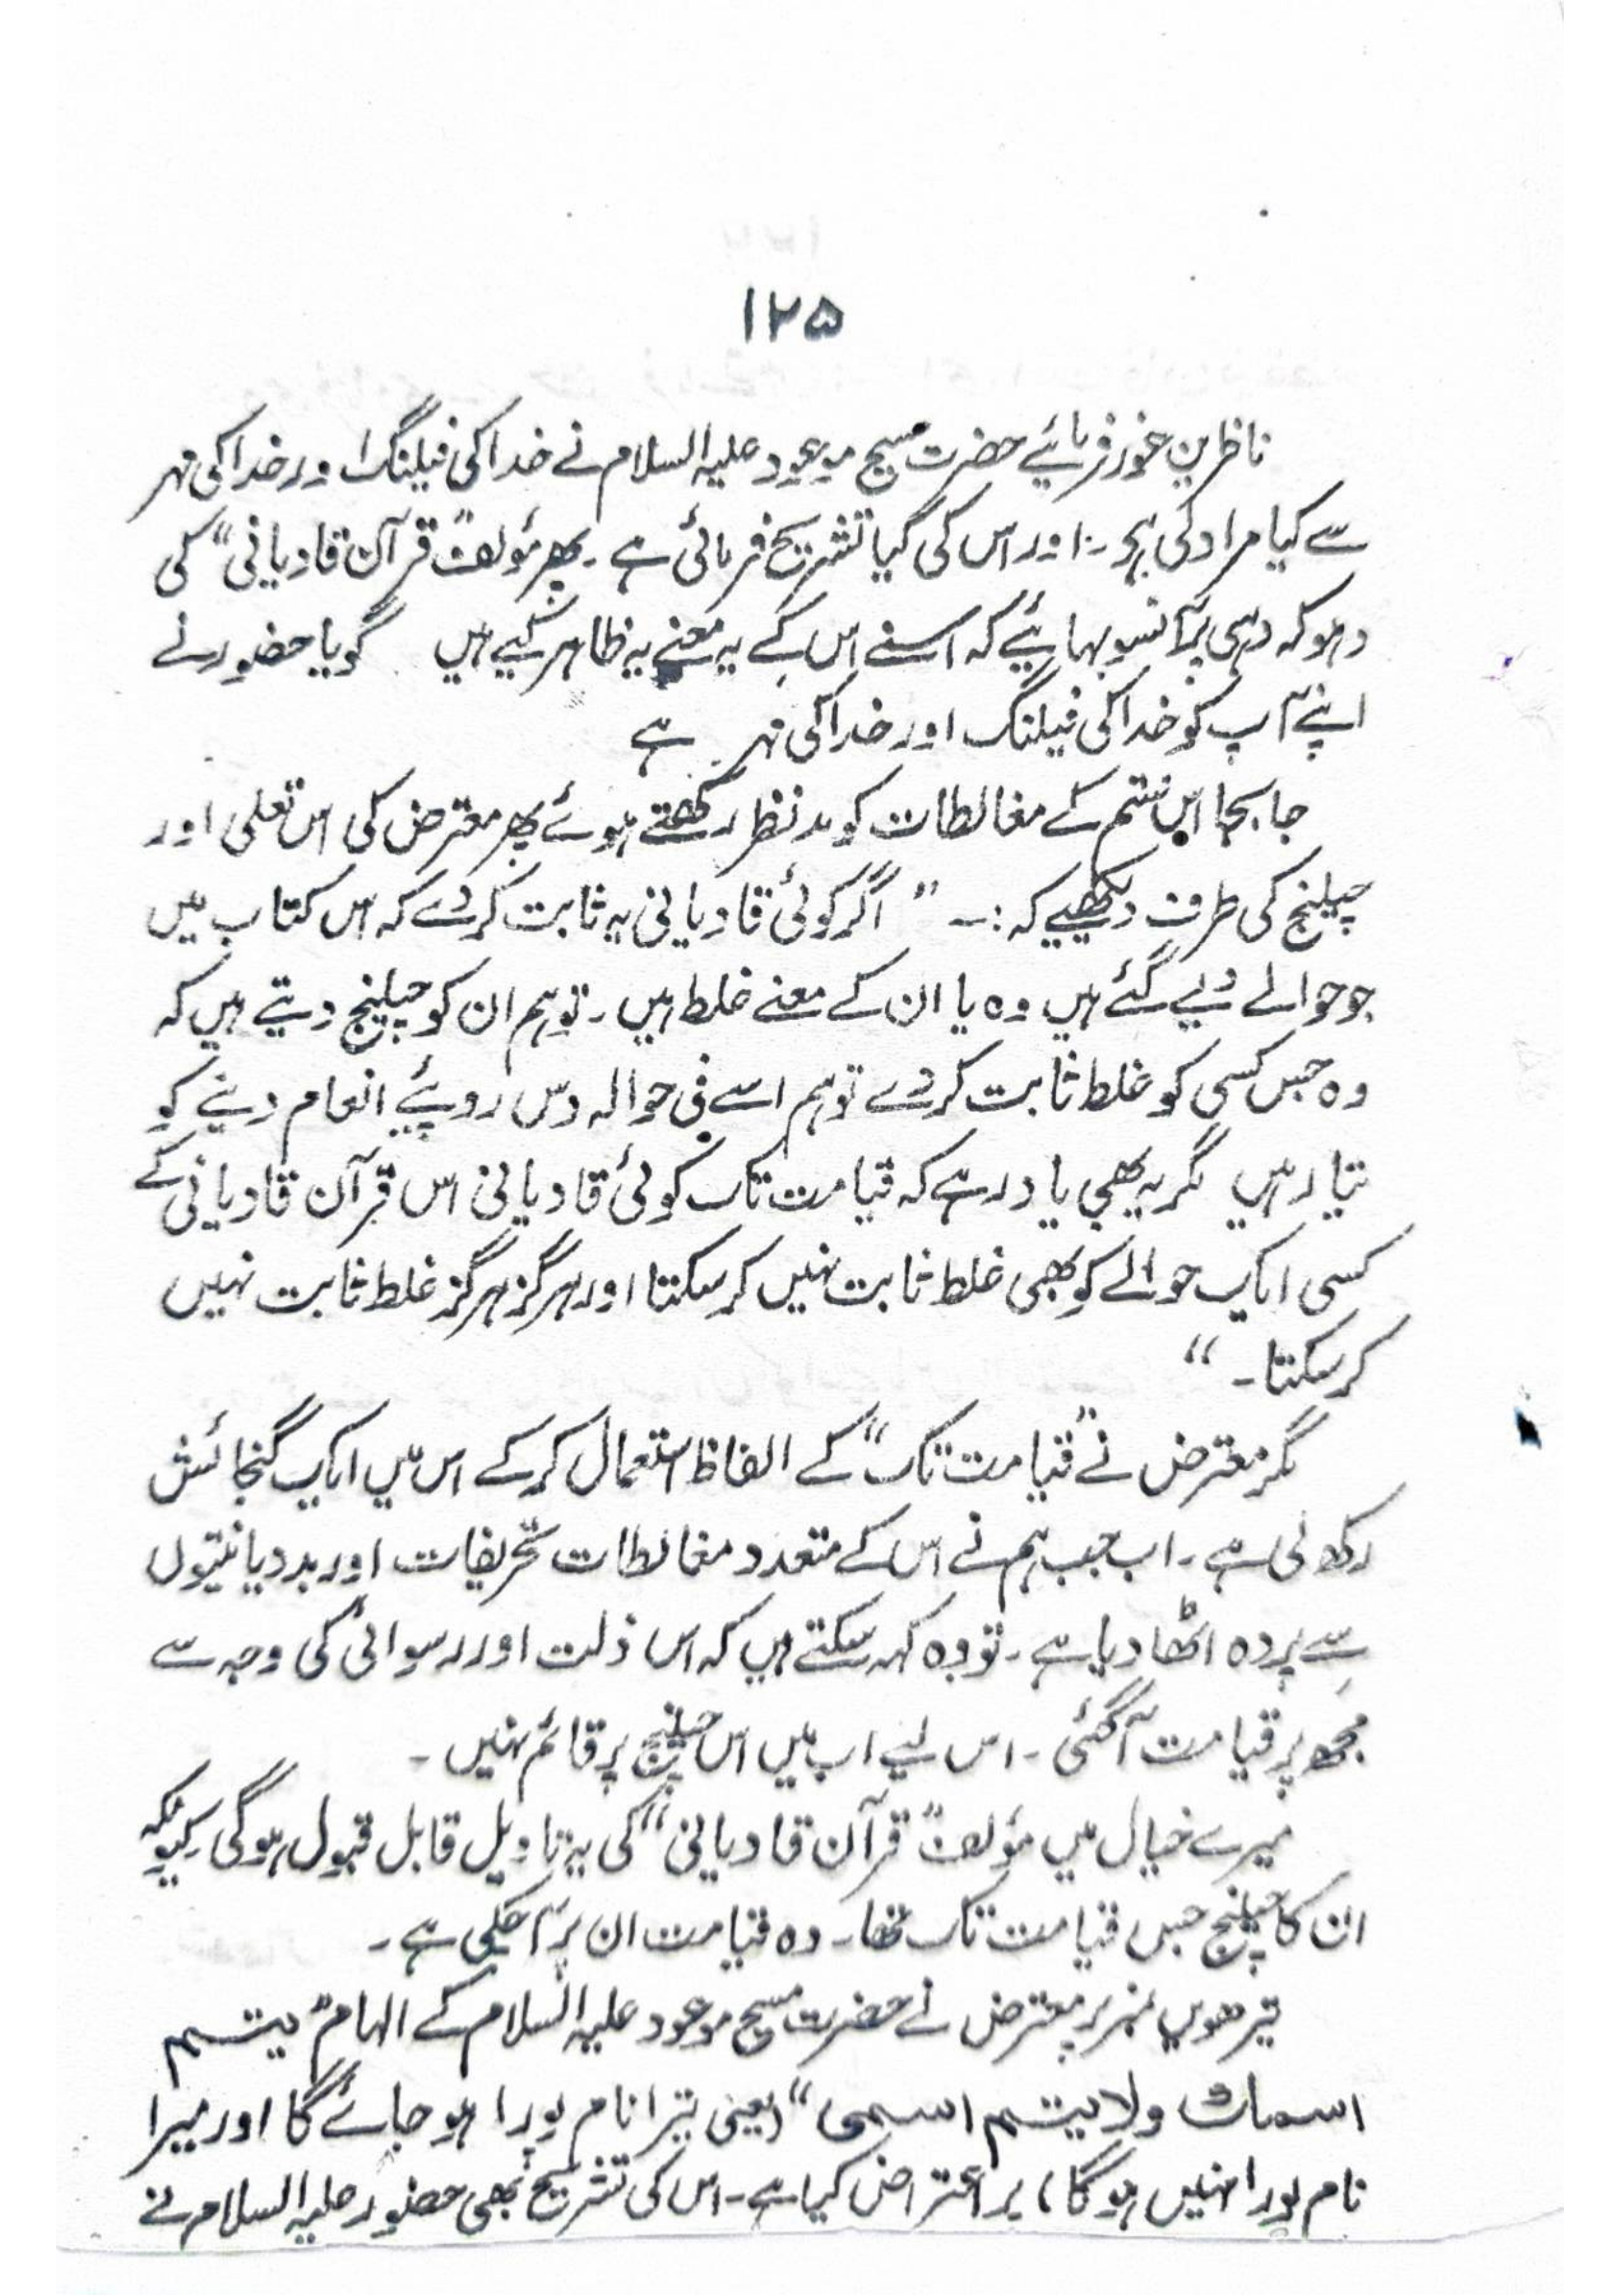 ۱۲۵
ناظرین غور فرمائیے حضرت مسیح موعود علیہ السلام نے خدا کی فیلنگ اور خدا کی مہر
سے کیا مراد لی ہے۔ اور اس کی کیا تشریح فرمائی ہے۔ پھر مؤلف "قرآن قادیانی" کی
دہوکہ دہی پر آنسو بہائیے کہ اسنے اس کے یہ معنے یہ ظاہر کیے ہیں گویا حضور نے
اپنے آپ کو خدا کی فیلنگ اور خدا کی مہر ہے
جابجا اس قسم کے مغالطات کو مدنظر رکھتے ہوئے پھر معترض کی اس تعلی اور
چیلنج کی طرف دیکھیے کہ:۔ "اگر کوئی قادیانی یہ ثابت کر دے کہ اس کتاب میں
جو حوالے دیے گئے ہیں وہ یا ان کے معنے غلط ہیں۔ تو ہم ان کو چیلنج دیتے ہیں کہ
وہ جس کسی کو غلط ثابت کر دے تو ہم اسے فی حوالہ دس روپئے انعام دینے کو
تیار ہیں مگر یہ بھی یاد رہے کہ قیامت تک کوئی قادیانی اس قرآن قادیانی کے
کسی ایک حوالے کو بھی غلط ثابت نہیں کر سکتا اور ہرگز ہرگز غلط ثابت نہیں
کر سکتا۔"
مگر معترض نے "قیامت تک" کے الفاظ استعمال کر کے اس میں ایک گنجائش
رکھ لی ہے۔ اب جب ہم نے اس کے متعدد مغالطات تحریفات اور بددیانتیوں
سے پردہ اٹھا دیا ہے۔ تو وہ کہہ سکتے ہیں کہ اس ذلت اور رسوائی کی وجہ سے
مجھ پر قیامت آگئی۔ اس لیے اب میں اس چیلنج پر قائم نہیں۔
میرے خیال میں مؤلف "قرآن قادیانی" کی یہ تاویل قابل قبول ہوگی کیونکہ
ان کا چیلنج جس قیامت تک تھا۔ وہ قیامت ان پر آ چکی ہے۔
تیرھویں نمبر پر معترض نے حضرت مسیح موعود علیہ السلام کے الہام "یتم
اسمك ولا یتم اسمی" (یعنی تیرا نام پورا ہو جائے گا اور میرا
نام پورا نہیں ہوگا) پر اعتراض کیا ہے۔ اس کی تشریح بھی حضور علیہ السلام نے